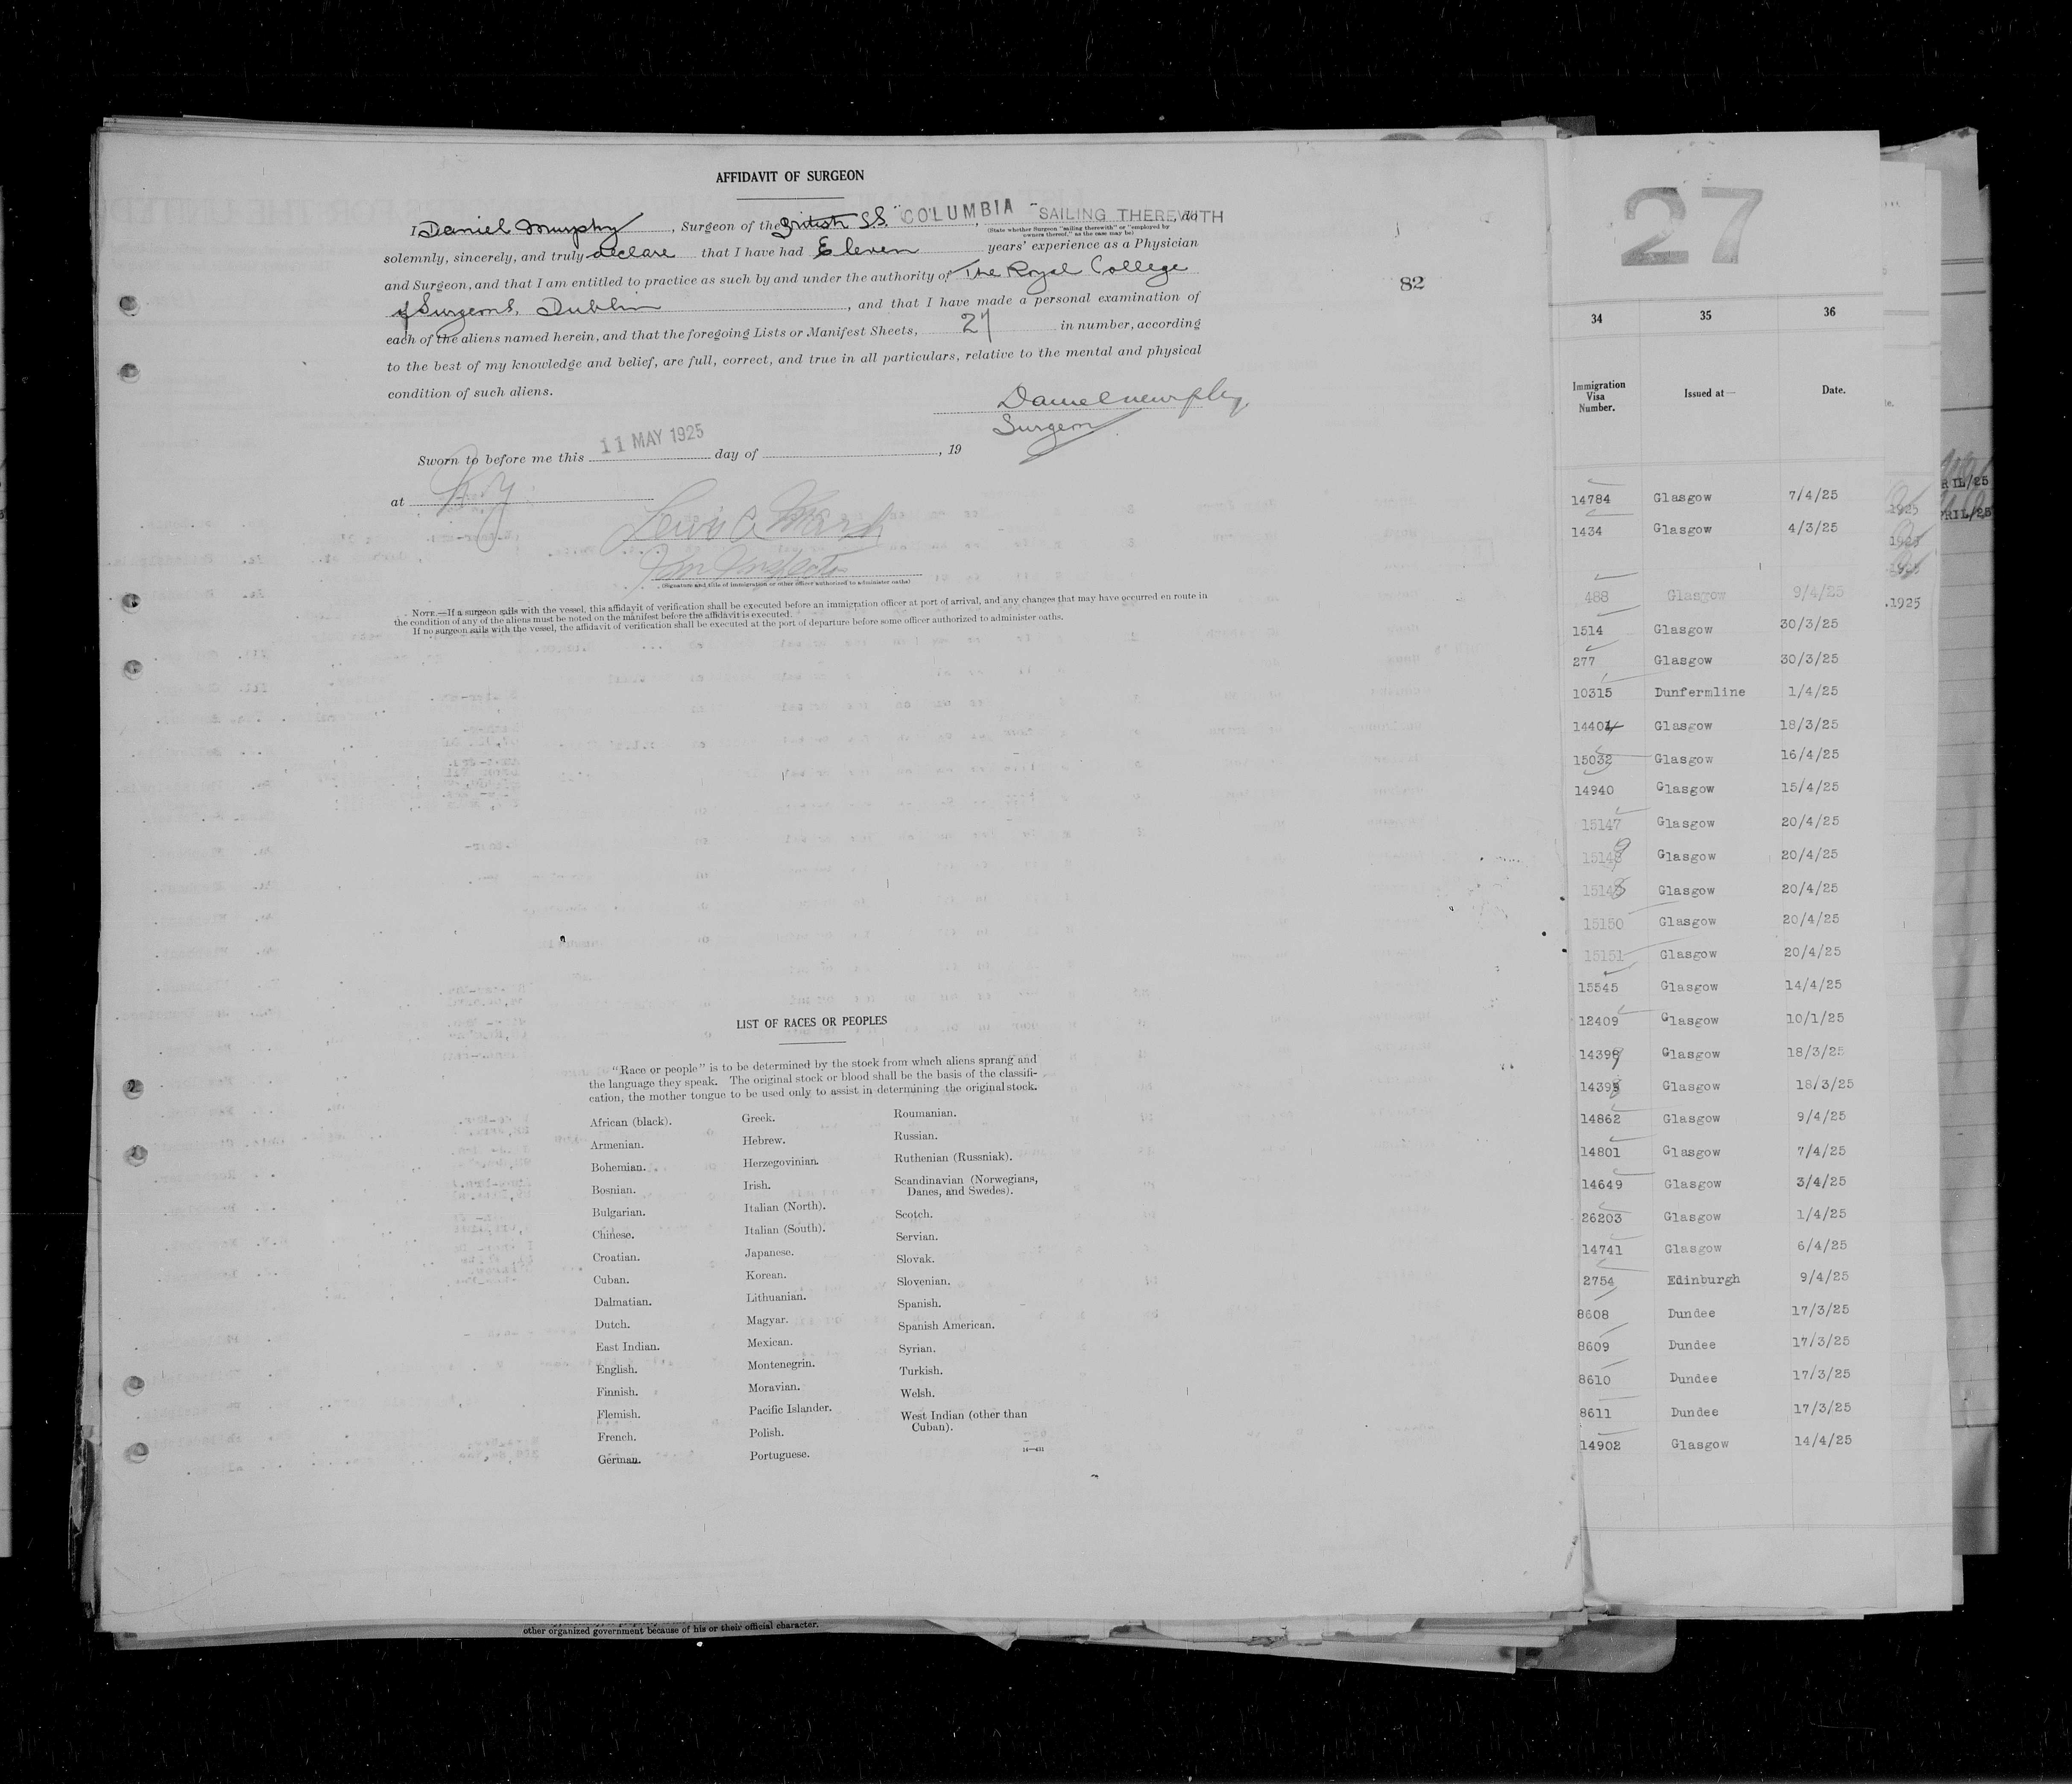 AFFIDAVIT OF SURGEON
I Daniel Murphy, Surgeon of the British S.S. "COLUMBIA" SAILING THEREWITH, do
(State whether Surgeon "sailing therewith" or "employed by
owners thereof," as the case may be)
solemnly, sincerely, and truly declare that I have had Eleven years' experience as a Physician
and Surgeon, and that I am entitled to practice as such by and under the authority of The Royal College
of Surgeons, Dublin, and that I have made a personal examination of
each of the aliens named herein, and that the foregoing Lists or Manifest Sheets, 27 in number, according
to the best of my knowledge and belief, are full, correct, and true in all particulars, relative to the mental and physical
condition of such aliens.
Daniel Murphy
Surgeon
Sworn to before me this 11 MAY 1925 day of , 19
at N.Y.
Imm Inspector
(Signature and title of immigration or other officer authorized to administer oaths)
NOTE.—If a surgeon sails with the vessel, this affidavit of verification shall be executed before an immigration officer at port of arrival, and any changes that may have occurred en route in
the condition of any of the aliens must be noted on the manifest before the affidavit is executed.
If no surgeon sails with the vessel, the affidavit of verification shall be executed at the port of departure before some officer authorized to administer oaths.
82
LIST OF RACES OR PEOPLES
"Race or people" is to be determined by the stock from which aliens sprang and
the language they speak. The original stock or blood shall be the basis of the classifi-
cation, the mother tongue to be used only to assist in determining the original stock.
African (black).
Armenian.
Bohemian.
Bosnian.
Bulgarian.
Chinese.
Croatian.
Cuban.
Dalmatian.
Dutch.
East Indian.
English.
Finnish.
Flemish.
French.
German.
Greek.
Hebrew.
Herzegovinian.
Irish.
Italian (North).
Italian (South).
Japanese.
Korean.
Lithuanian.
Magyar.
Mexican.
Montenegrin.
Moravian.
Pacific Islander.
Polish.
Portuguese.
Roumanian.
Russian.
Ruthenian (Russniak).
Scandinavian (Norwegians,
Danes, and Swedes).
Scotch.
Servian.
Slovak.
Slovenian.
Spanish.
Spanish American.
Syrian.
Turkish.
Welsh.
West Indian (other than
Cuban).
other organized government because of his or their official character.
27
34 35 36
Immigration
Visa
Number.
Issued at—
Date.
14784 Glasgow 7/4/25
1434 Glasgow 4/3/25
488 Glasgow 9/4/25
1514 Glasgow 30/3/25
277 Glasgow 30/3/25
10315 Dunfermline 1/4/25
14404 Glasgow 18/3/25
15032 Glasgow 16/4/25
14940 Glasgow 15/4/25
15147 Glasgow 20/4/25
15149 Glasgow 20/4/25
15148 Glasgow 20/4/25
15150 Glasgow 20/4/25
15151 Glasgow 20/4/25
15545 Glasgow 14/4/25
12409 Glasgow 10/1/25
14399 Glasgow 18/3/25
14398 Glasgow 18/3/25
14862 Glasgow 9/4/25
14801 Glasgow 7/4/25
14649 Glasgow 3/4/25
26203 Glasgow 1/4/25
14741 Glasgow 6/4/25
2754 Edinburgh 9/4/25
8608 Dundee 17/3/25
8609 Dundee 17/3/25
8610 Dundee 17/3/25
8611 Dundee 17/3/25
14902 Glasgow 14/4/25
1925
1925
.1925
RIL/25
PRIL/25